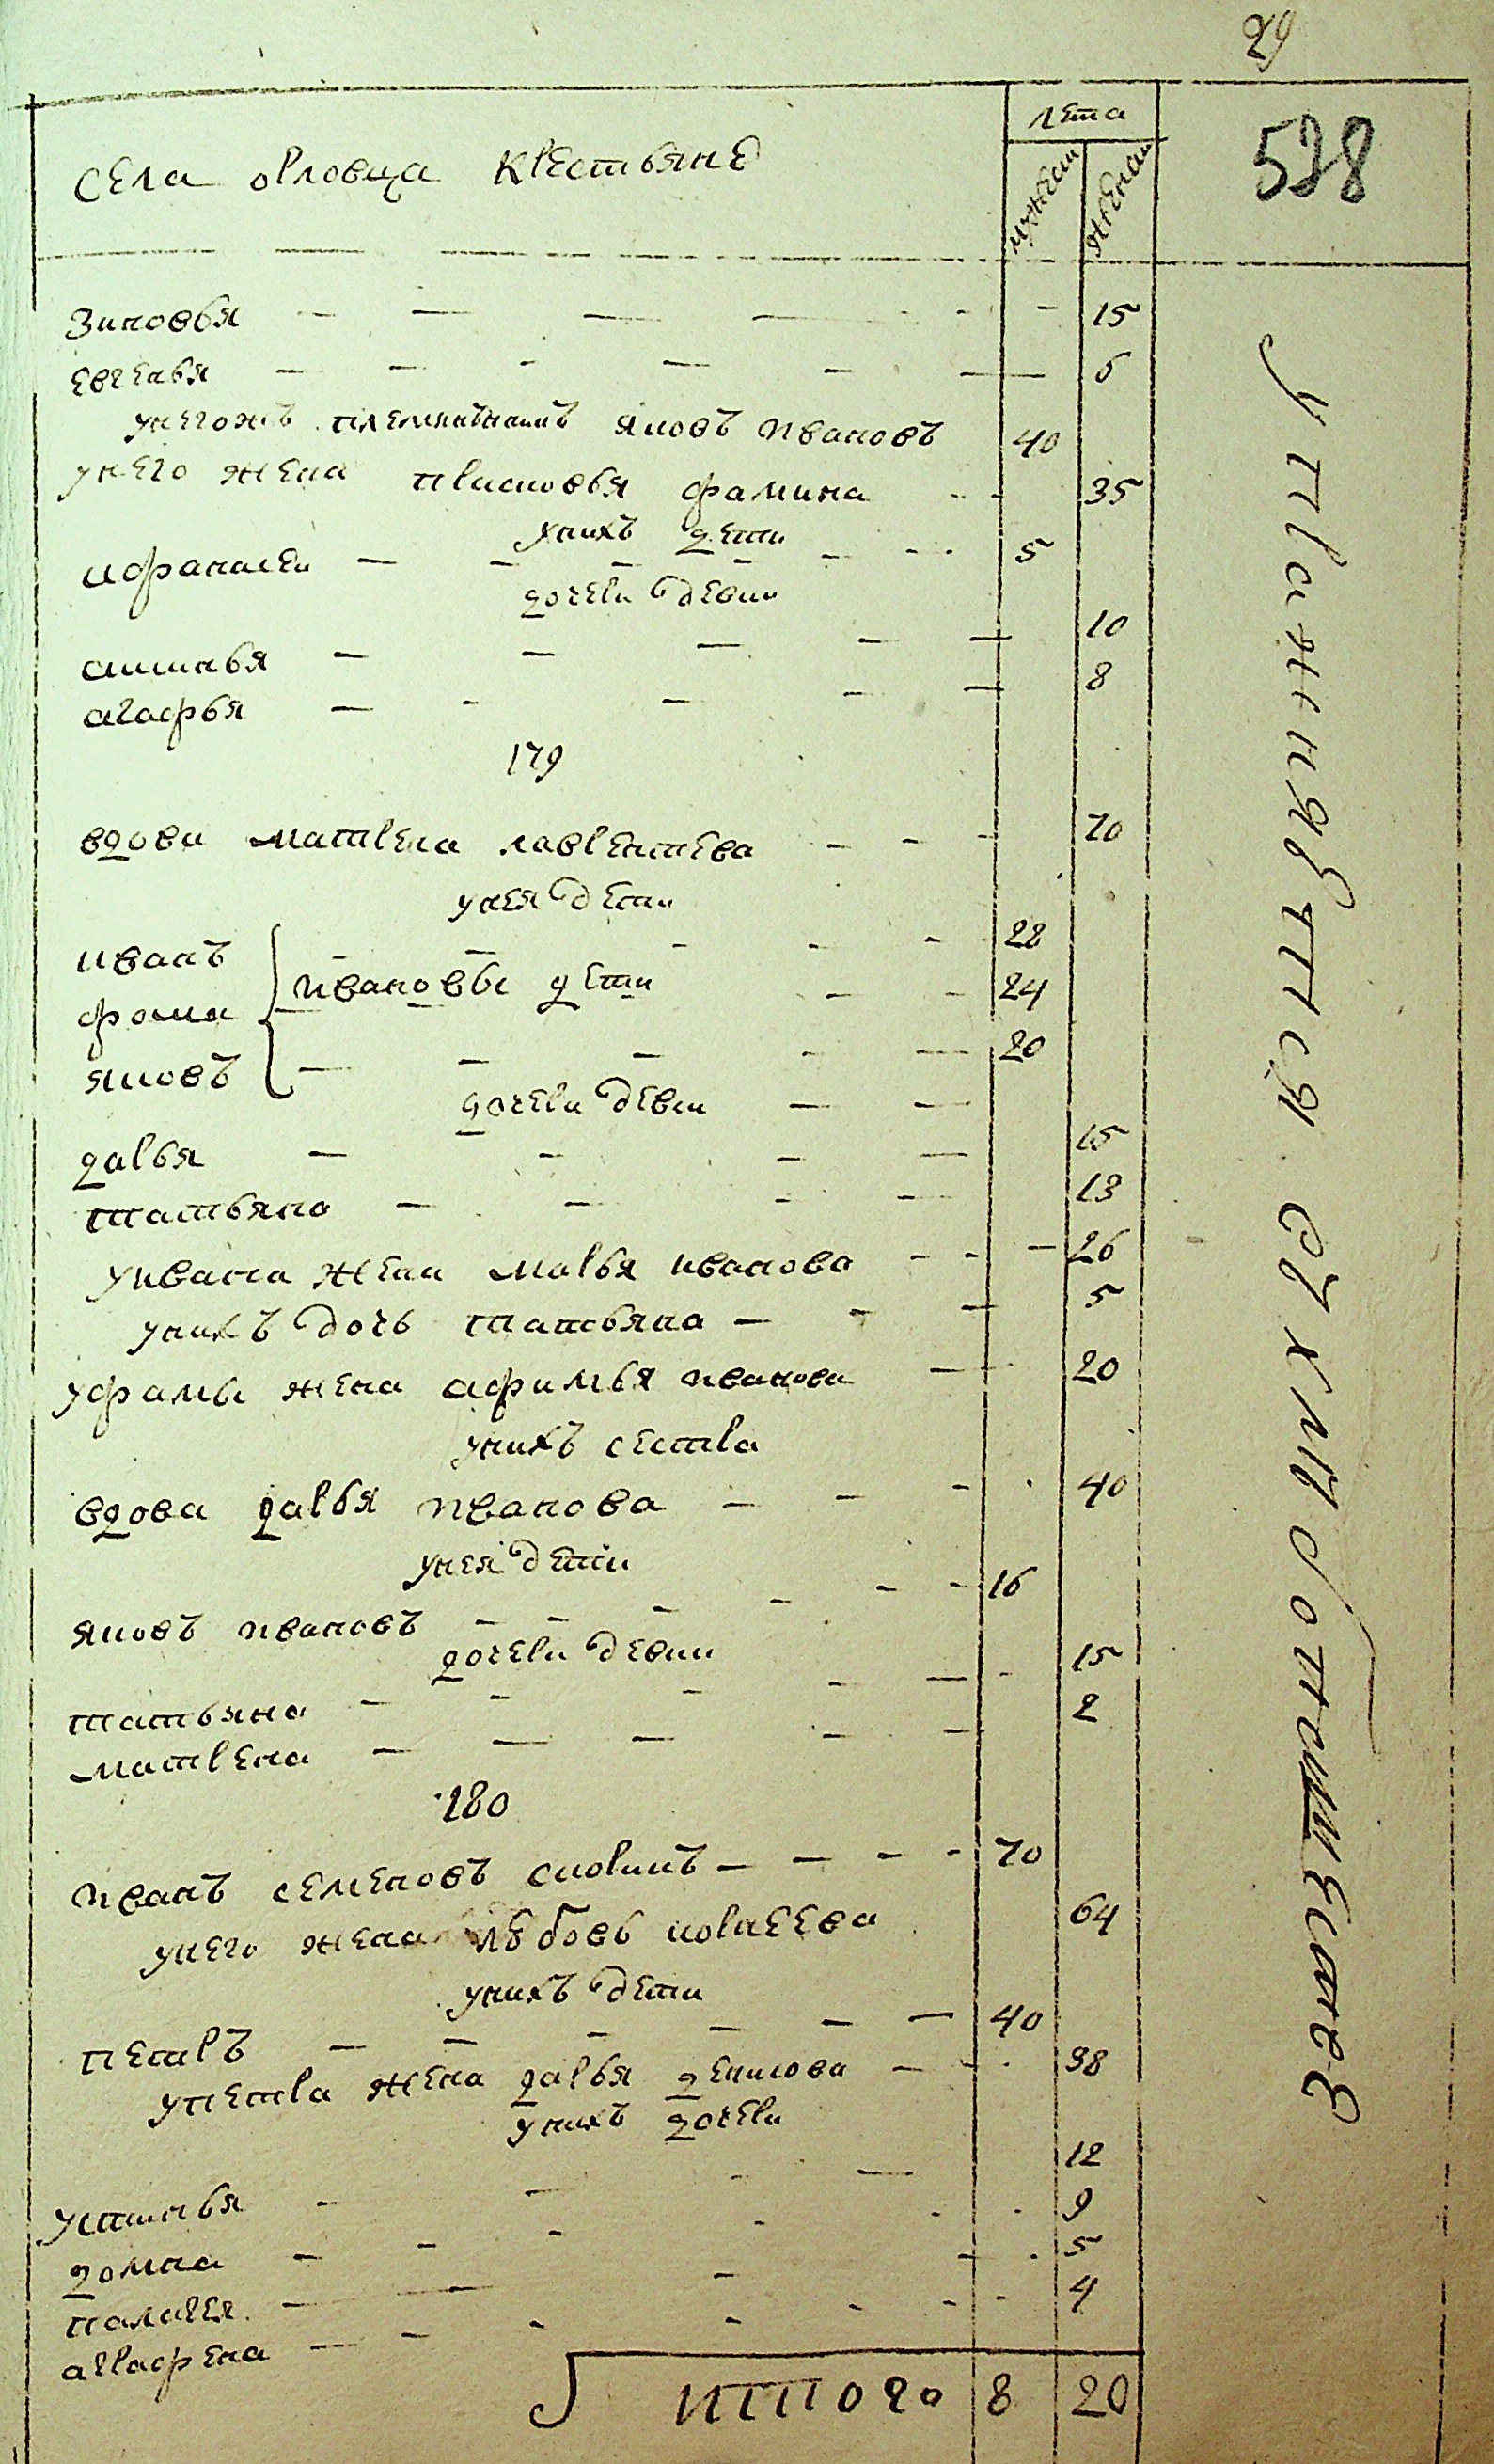 29
лета
села орловца крестьяне
мужеска
женска
528
зиновья — 15
евгенья — 6
у негожъ племянникъ яковъ ивановъ 40
у него жена прасковья фамина 35
у нихъ дети
афанасеи — 5
дочери девки
анисья — 10
агафья — 8
179
вдова матрена лаврентева — 70
у нея дети
иванъ — 22
фома ивановы дети — 24
яковъ — 20
дочери девки —
дарья — 15
татьяна — 13
у ивана жена марья иванова — 26
у нихъ дочь татьяна — 5
у фамы жена афимья иванова — 20
у нихъ сестра
вдова дарья иванова — 40
у нея дети
яковъ ивановъ — 16
дочери девки
татьяна — 15
матрена — 2
180
иванъ семеновъ — 70
у него жена любовь 64
у нихъ дети
петръ — 40
у петра жена дарья денисова — 38
у нихъ дочери
устинья — 12
домна — 9
палагея — 5
аграфена — 4
итого 8 20
упражняетца